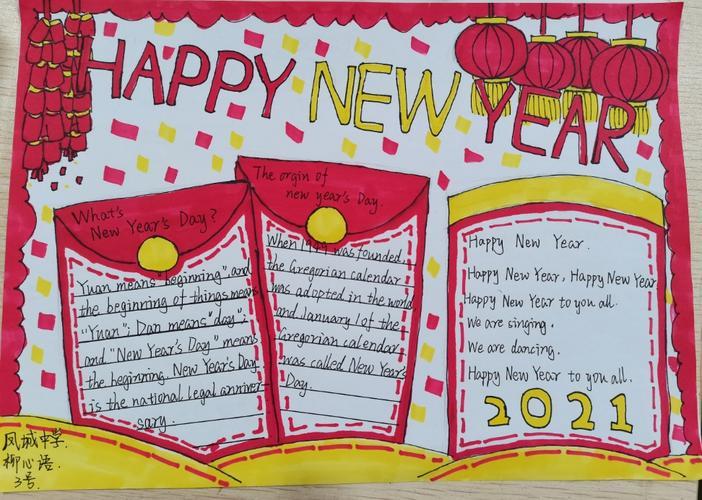 HAPPY NEW YEAR
What's
New Year's Day?
Yuan means "beginning" and
the beginning of things means
"Yuan"; Dan means "day";
and "New Year's Day" means
the beginning. New Year's Day
is the national legal anniver-
sary.
The orgin of
new year's Day.
When 1949 was founded,
the Gregorian calendar
was adopted in the world
and January 1 of the
Gregorian calendar
was called New Year's
Day.
Happy New Year.
Happy New Year, Happy New Year
Happy New Year to you all.
We are singing.
We are dancing.
Happy New Year to you all.
2021
凤城中学.
柳心语.
3号.